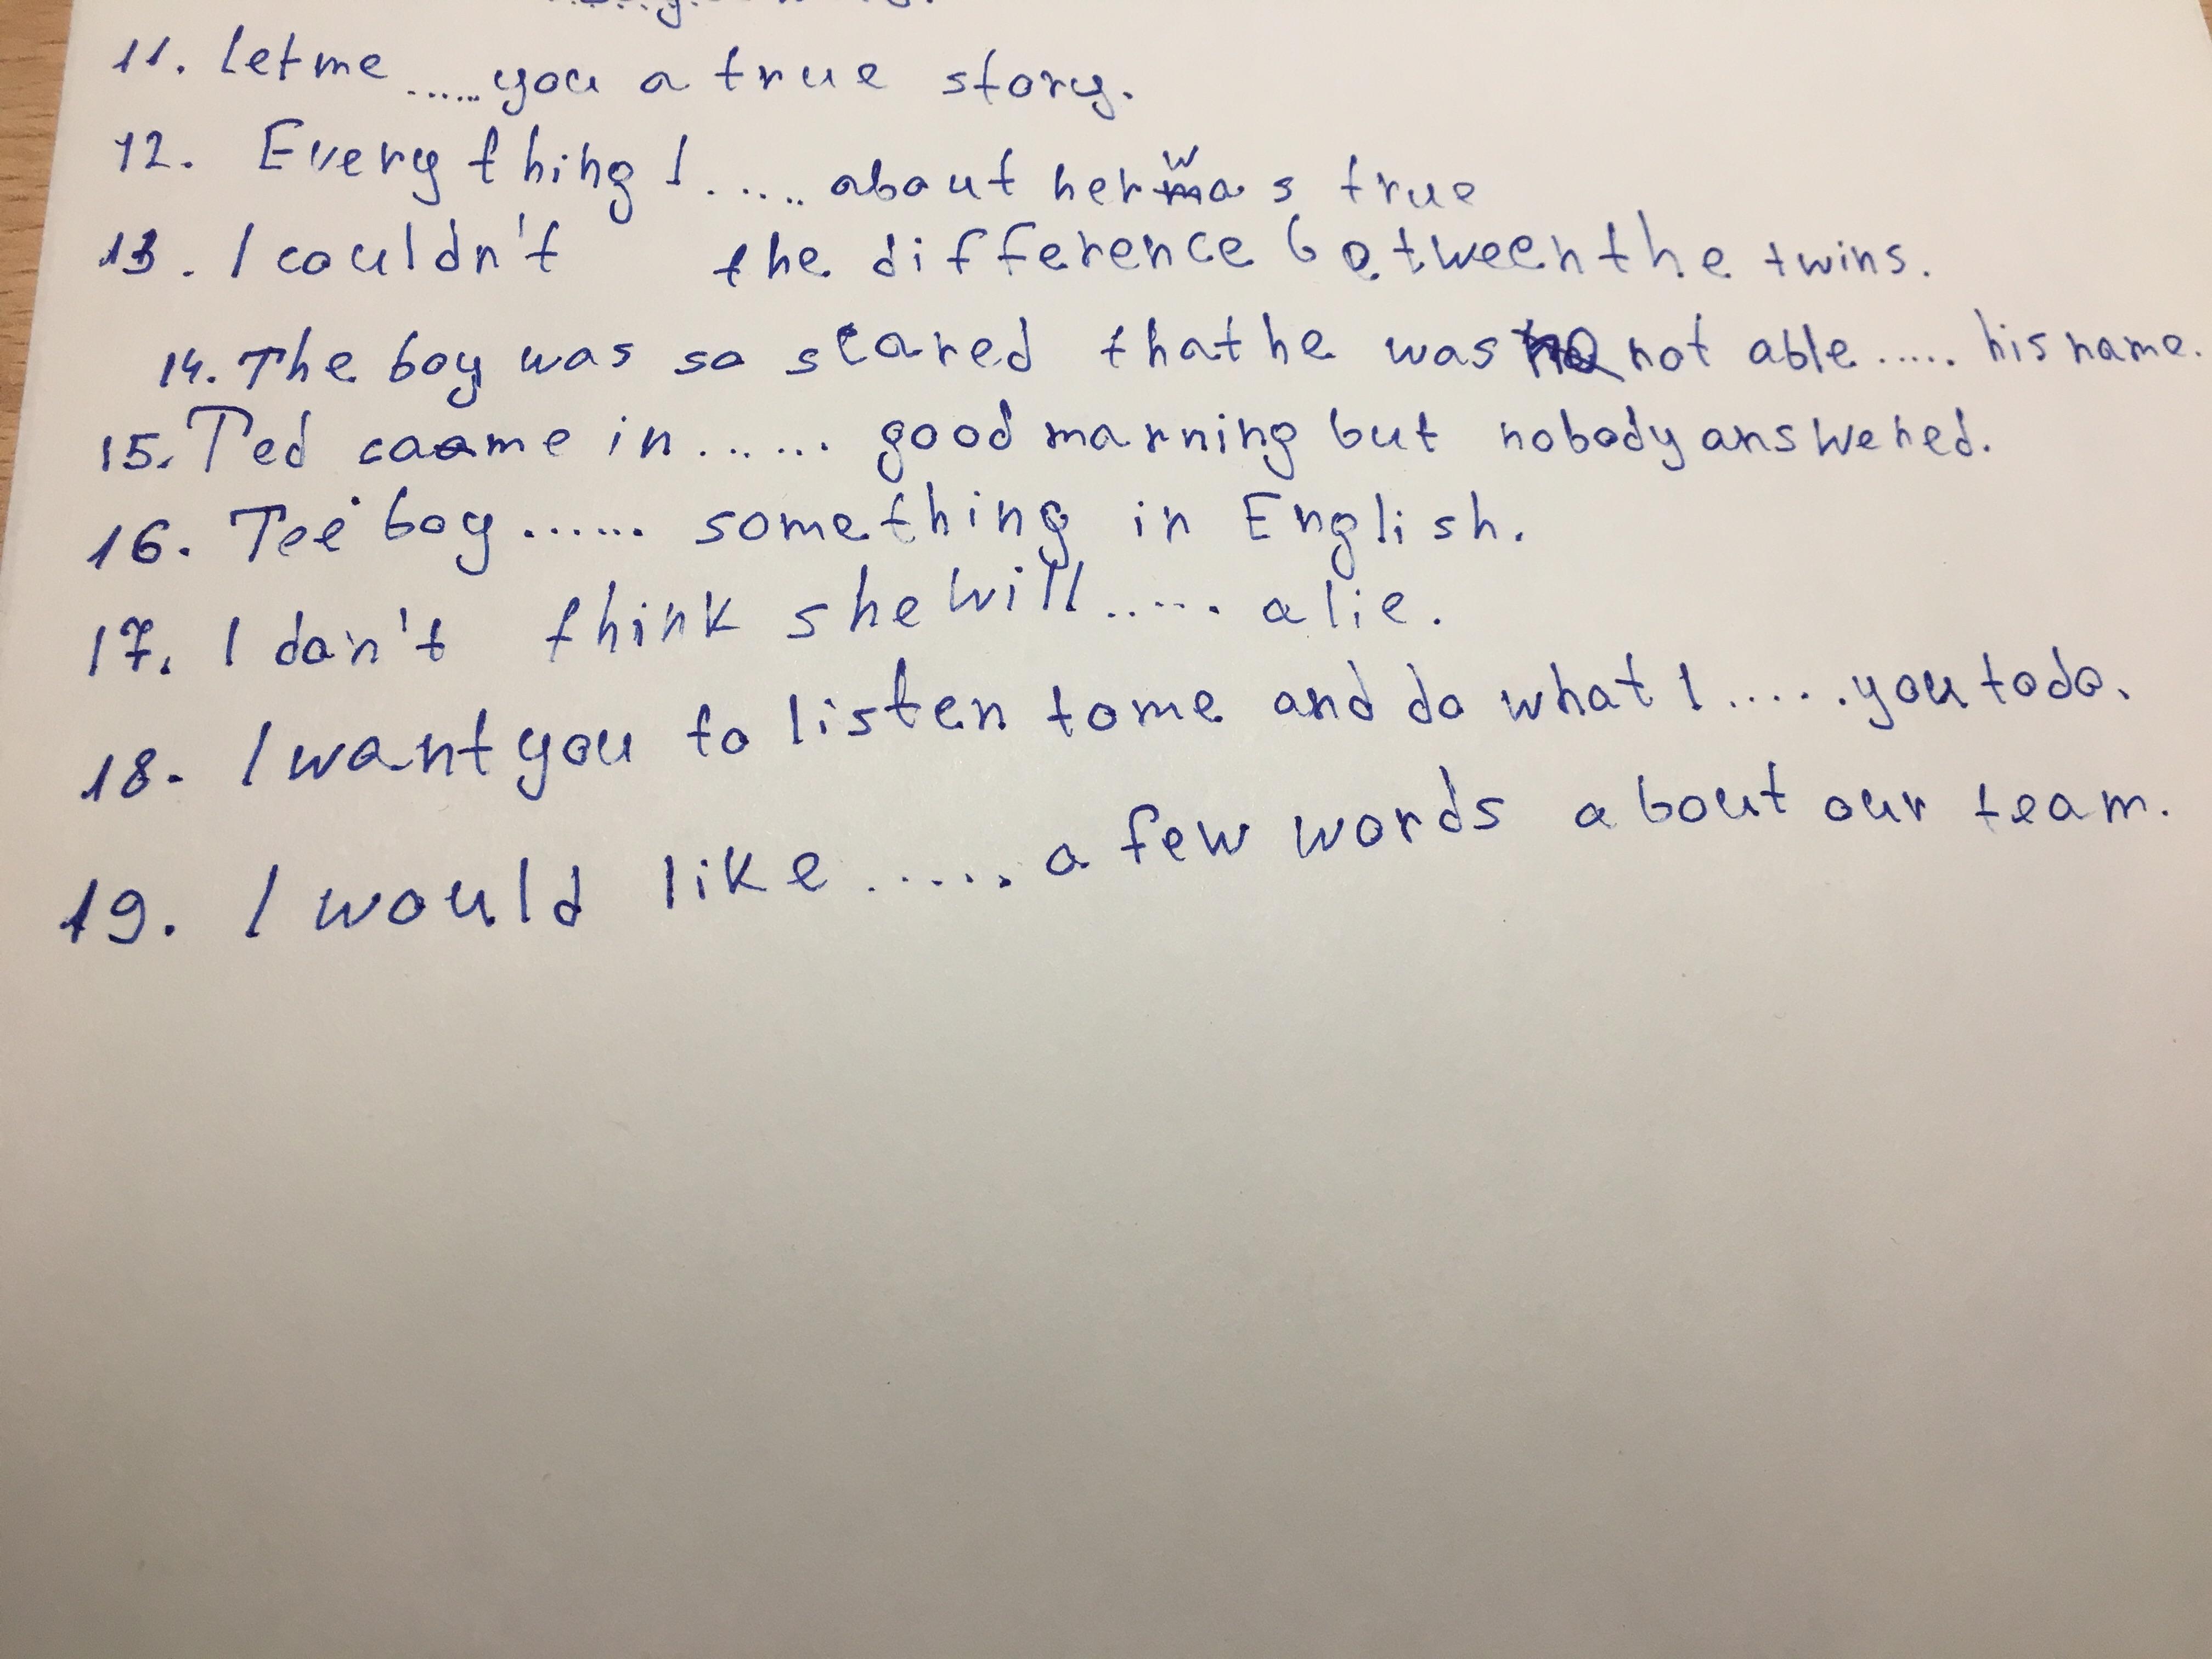 11. let me ...... you a true story.
12. Every thing I ..... about her was true
13. I couldn't the difference between the twins.
14. The boy was so scared that he was not able ..... his name.
15. Ted caame in ...... good marning but nobody answered.
16. Tee boy ...... something in English.
17. I don't think she will ..... a lie.
18. I want you to listen to me and do what I ..... you to do.
19. I would like ..... a few words about our team.